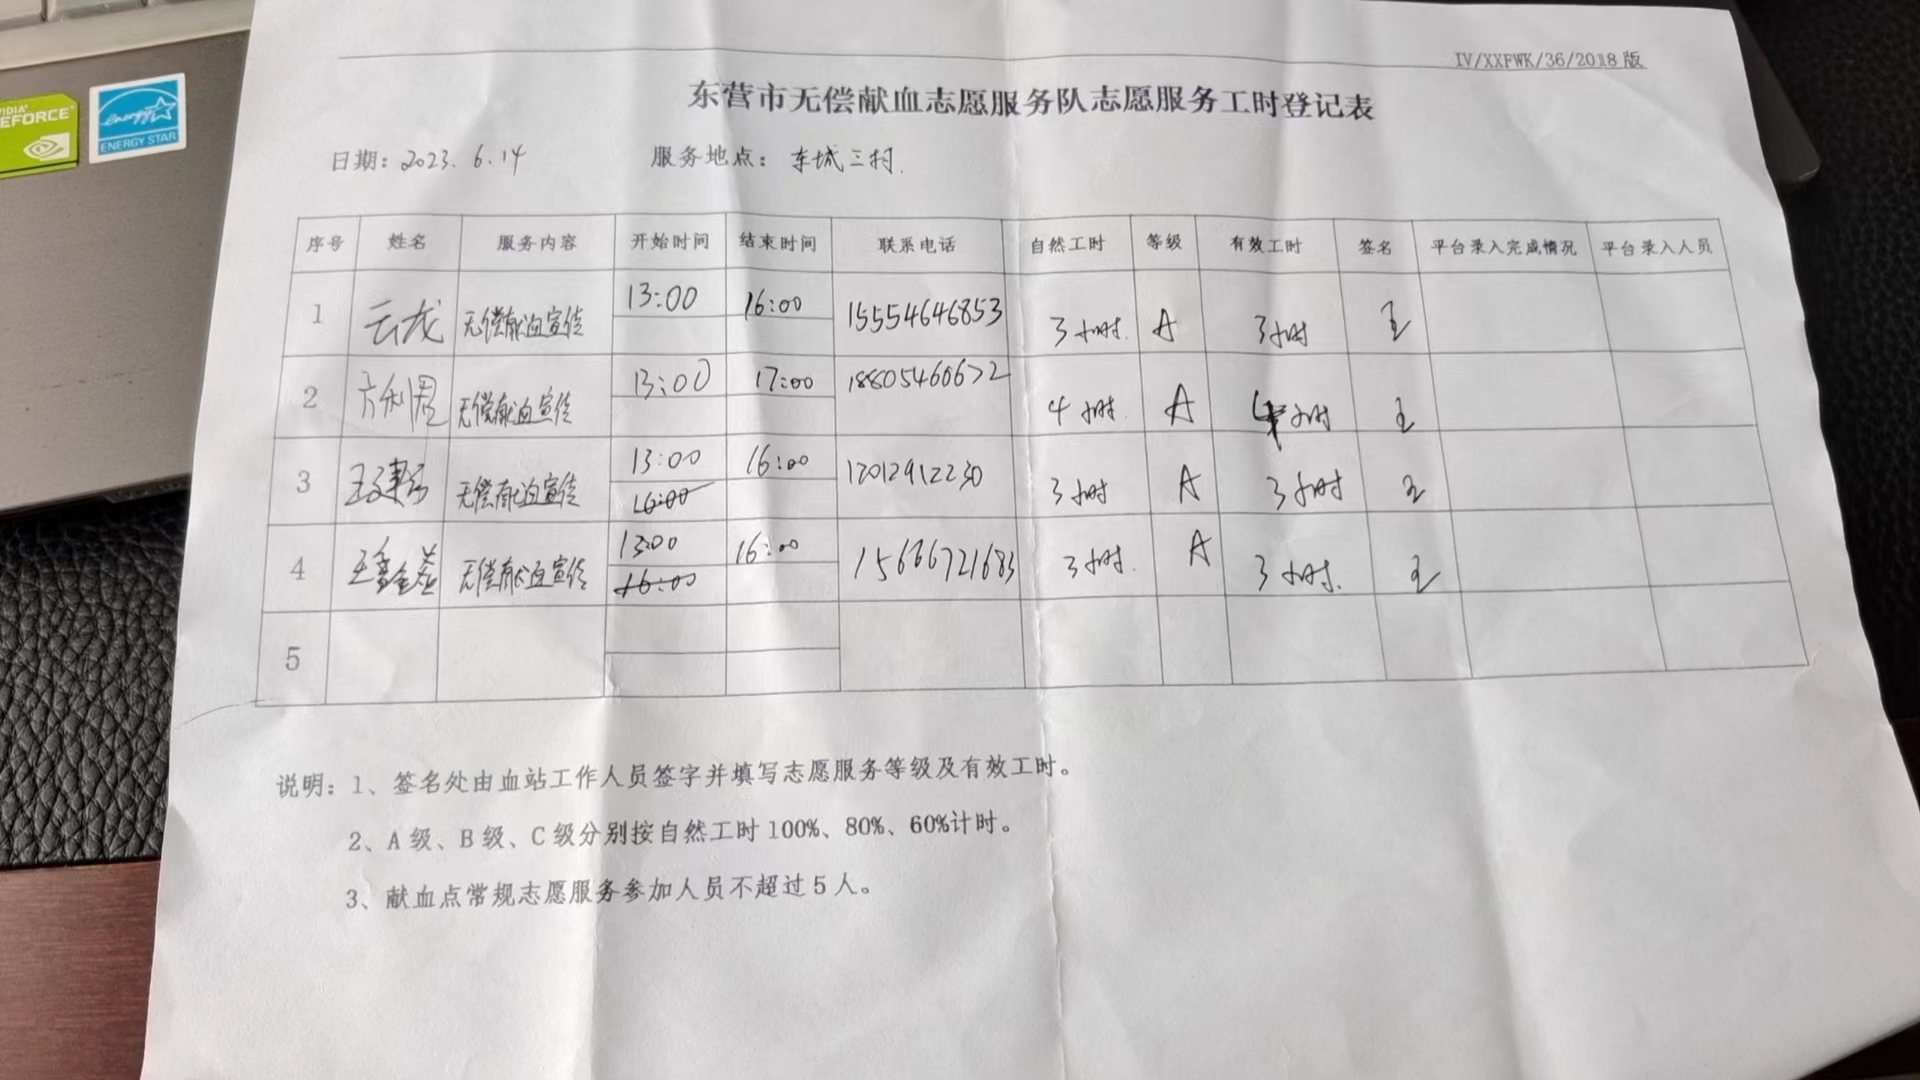 NVIDIA
GEFORCE
energy
ENERGY STAR
IV/XXFWK/36/2018版
东营市无偿献血志愿服务队志愿服务工时登记表
日期：2023.6.14 服务地点：东城三村.
序号 姓名 服务内容 开始时间 结束时间 联系电话 自然工时 等级 有效工时 签名 平台录入完成情况 平台录入人员
1 云龙 无偿献血宣传 13:00 16:00 15554646853 3小时. A 3小时
2 无偿献血宣传 13:00 17:00 18805460672 4小时. A 4小时
3 无偿献血宣传 13:00 16:00 3小时 A 3小时
16:00
4 无偿献血宣传 13:00 16:00 15666721683 3小时. A 3小时.
16:00
5
说明：1、签名处由血站工作人员签字并填写志愿服务等级及有效工时。
2、A级、B级、C级分别按自然工时100%、80%、60%计时。
3、献血点常规志愿服务参加人员不超过5人。